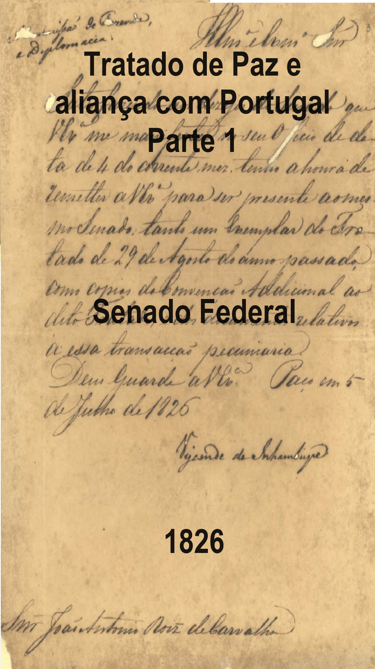 de Fazenda,
e Diplomacia.
Illmo e Exmo Snr
Tratado de Paz e
aliança com Portugal
Parte 1
que
VEx.ª me seu Officio de da-
ta de 4 do corrente mez, tenho a honra de
remetter a VEx.ª para ser presente ao mes-
mo Senado, tanto um Exemplar do Tra-
tado de 29 de Agosto do anno passado,
como copias da Convenção Addicional ao
dito relativos
Senado Federal
a essa transacção pecuniaria.
Deus Guarde a VEx.ª Paço em 5
de Julho de 1826
Visconde de Inhambupe
1826
Snr João Antonio Roiz de Carvalho